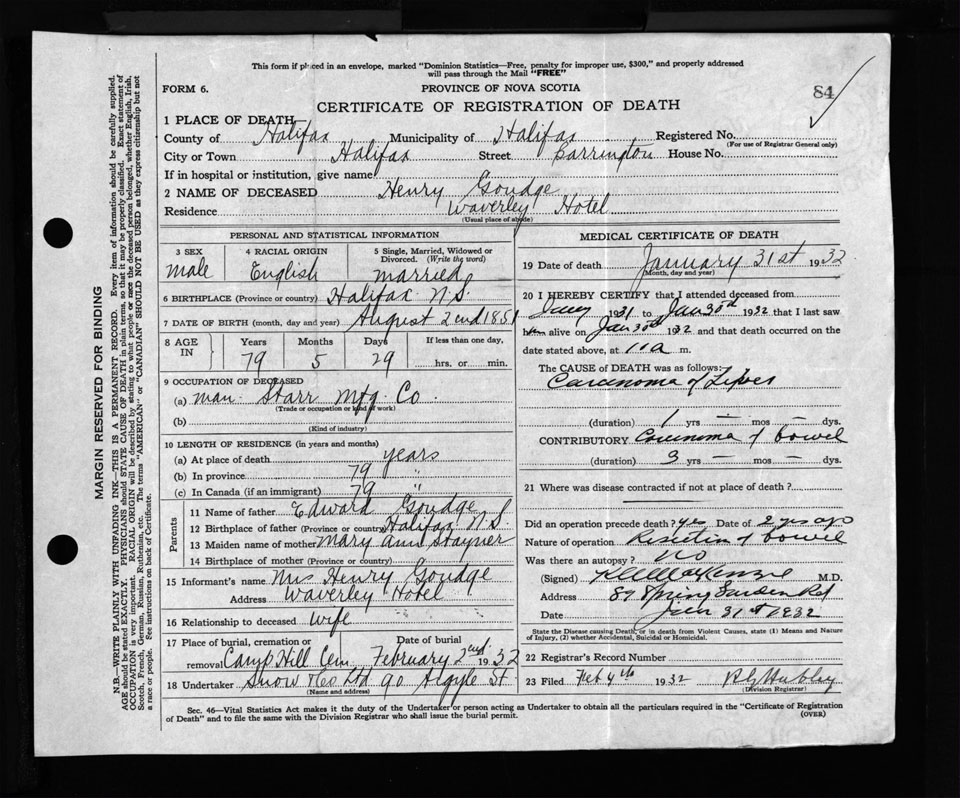 This form if placed in an envelope, marked "Dominion Statistics—Free, penalty for improper use, $300," and properly addressed
will pass through the Mail "FREE"
FORM 6.
PROVINCE OF NOVA SCOTIA
84
CERTIFICATE OF REGISTRATION OF DEATH
1 PLACE OF DEATH
County of Halifax Municipality of Halifax Registered No.
(For use of Registrar General only)
City or Town Halifax Street Barrington House No.
If in hospital or institution, give name
2 NAME OF DECEASED Henry Goudge
Residence Waverley Hotel
(Usual place of abode)
PERSONAL AND STATISTICAL INFORMATION
3 SEX 4 RACIAL ORIGIN 5 Single, Married, Widowed or
Divorced. (Write the word)
male English married
6 BIRTHPLACE (Province or country) Halifax N.S.
7 DATE OF BIRTH (month, day and year) August 2nd 1851
8 AGE IN Years Months Days If less than one day,
79 5 29 hrs. or min.
9 OCCUPATION OF DECEASED
(a) Man. Starr Mfg. Co.
(Trade or occupation or kind of work)
(b)
(Kind of industry)
10 LENGTH OF RESIDENCE (in years and months)
(a) At place of death years
(b) In province 79 "
(c) In Canada (if an immigrant) 79 "
Parents
11 Name of father Edward Goudge
12 Birthplace of father (Province or country) Halifax N.S.
13 Maiden name of mother Mary Ann Stayner
14 Birthplace of mother (Province or country)
15 Informant's name Mrs Henry Goudge
Address Waverley Hotel
16 Relationship to deceased wife
17 Place of burial, cremation or Date of burial
removal Camp Hill Cem. February 2nd 1932
18 Undertaker Snow & Co Ltd 90 Argyle St
(Name and address)
MEDICAL CERTIFICATE OF DEATH
19 Date of death January 31st 1932
(Month, day and year)
20 I HEREBY CERTIFY that I attended deceased from
1931 to Jan 30th 1932 that I last saw
him alive on Jan 30th 1932 and that death occurred on the
date stated above, at 11 a m.
The CAUSE OF DEATH was as follows:
Carcinoma of Liver
(duration) 1 yrs — mos — dys.
CONTRIBUTORY Carcinoma of bowel
(duration) 3 yrs — mos — dys.
21 Where was disease contracted if not at place of death?
Did an operation precede death? yes Date of 2 yrs ago
Nature of operation Resection of bowel
Was there an autopsy? no
(Signed) MacKenzie M.D.
Address 89 Spring Garden Rd
Date Jan 31st 1932
State the Disease causing Death, or in death from Violent Causes, state (1) Means and Nature
of Injury, (2) whether Accidental, Suicidal or Homicidal.
22 Registrar's Record Number
23 Filed Feb 4th 1932 Hubley
(Division Registrar)
Sec. 46—Vital Statistics Act makes it the duty of the Undertaker or person acting as Undertaker to obtain all the particulars required in the "Certificate of Registration
of Death" and to file the same with the Division Registrar who shall issue the burial permit.
(OVER)
MARGIN RESERVED FOR BINDING
N.B.—WRITE PLAINLY WITH UNFADING INK—THIS IS A PERMANENT RECORD. Every item of information should be carefully supplied.
AGE should be stated EXACTLY. PHYSICIANS should STATE CAUSE OF DEATH in plain terms, so that it may be properly classified. Exact statement of
OCCUPATION is very important. RACIAL ORIGIN will be described by stating to what people or race the deceased person belonged, whether English, Irish,
Scotch, French, German, Russian, Ruthenian, etc. The terms "AMERICAN" or "CANADIAN" SHOULD NOT BE USED as they express citizenship but not
a race or people. See instructions on back of Certificate.